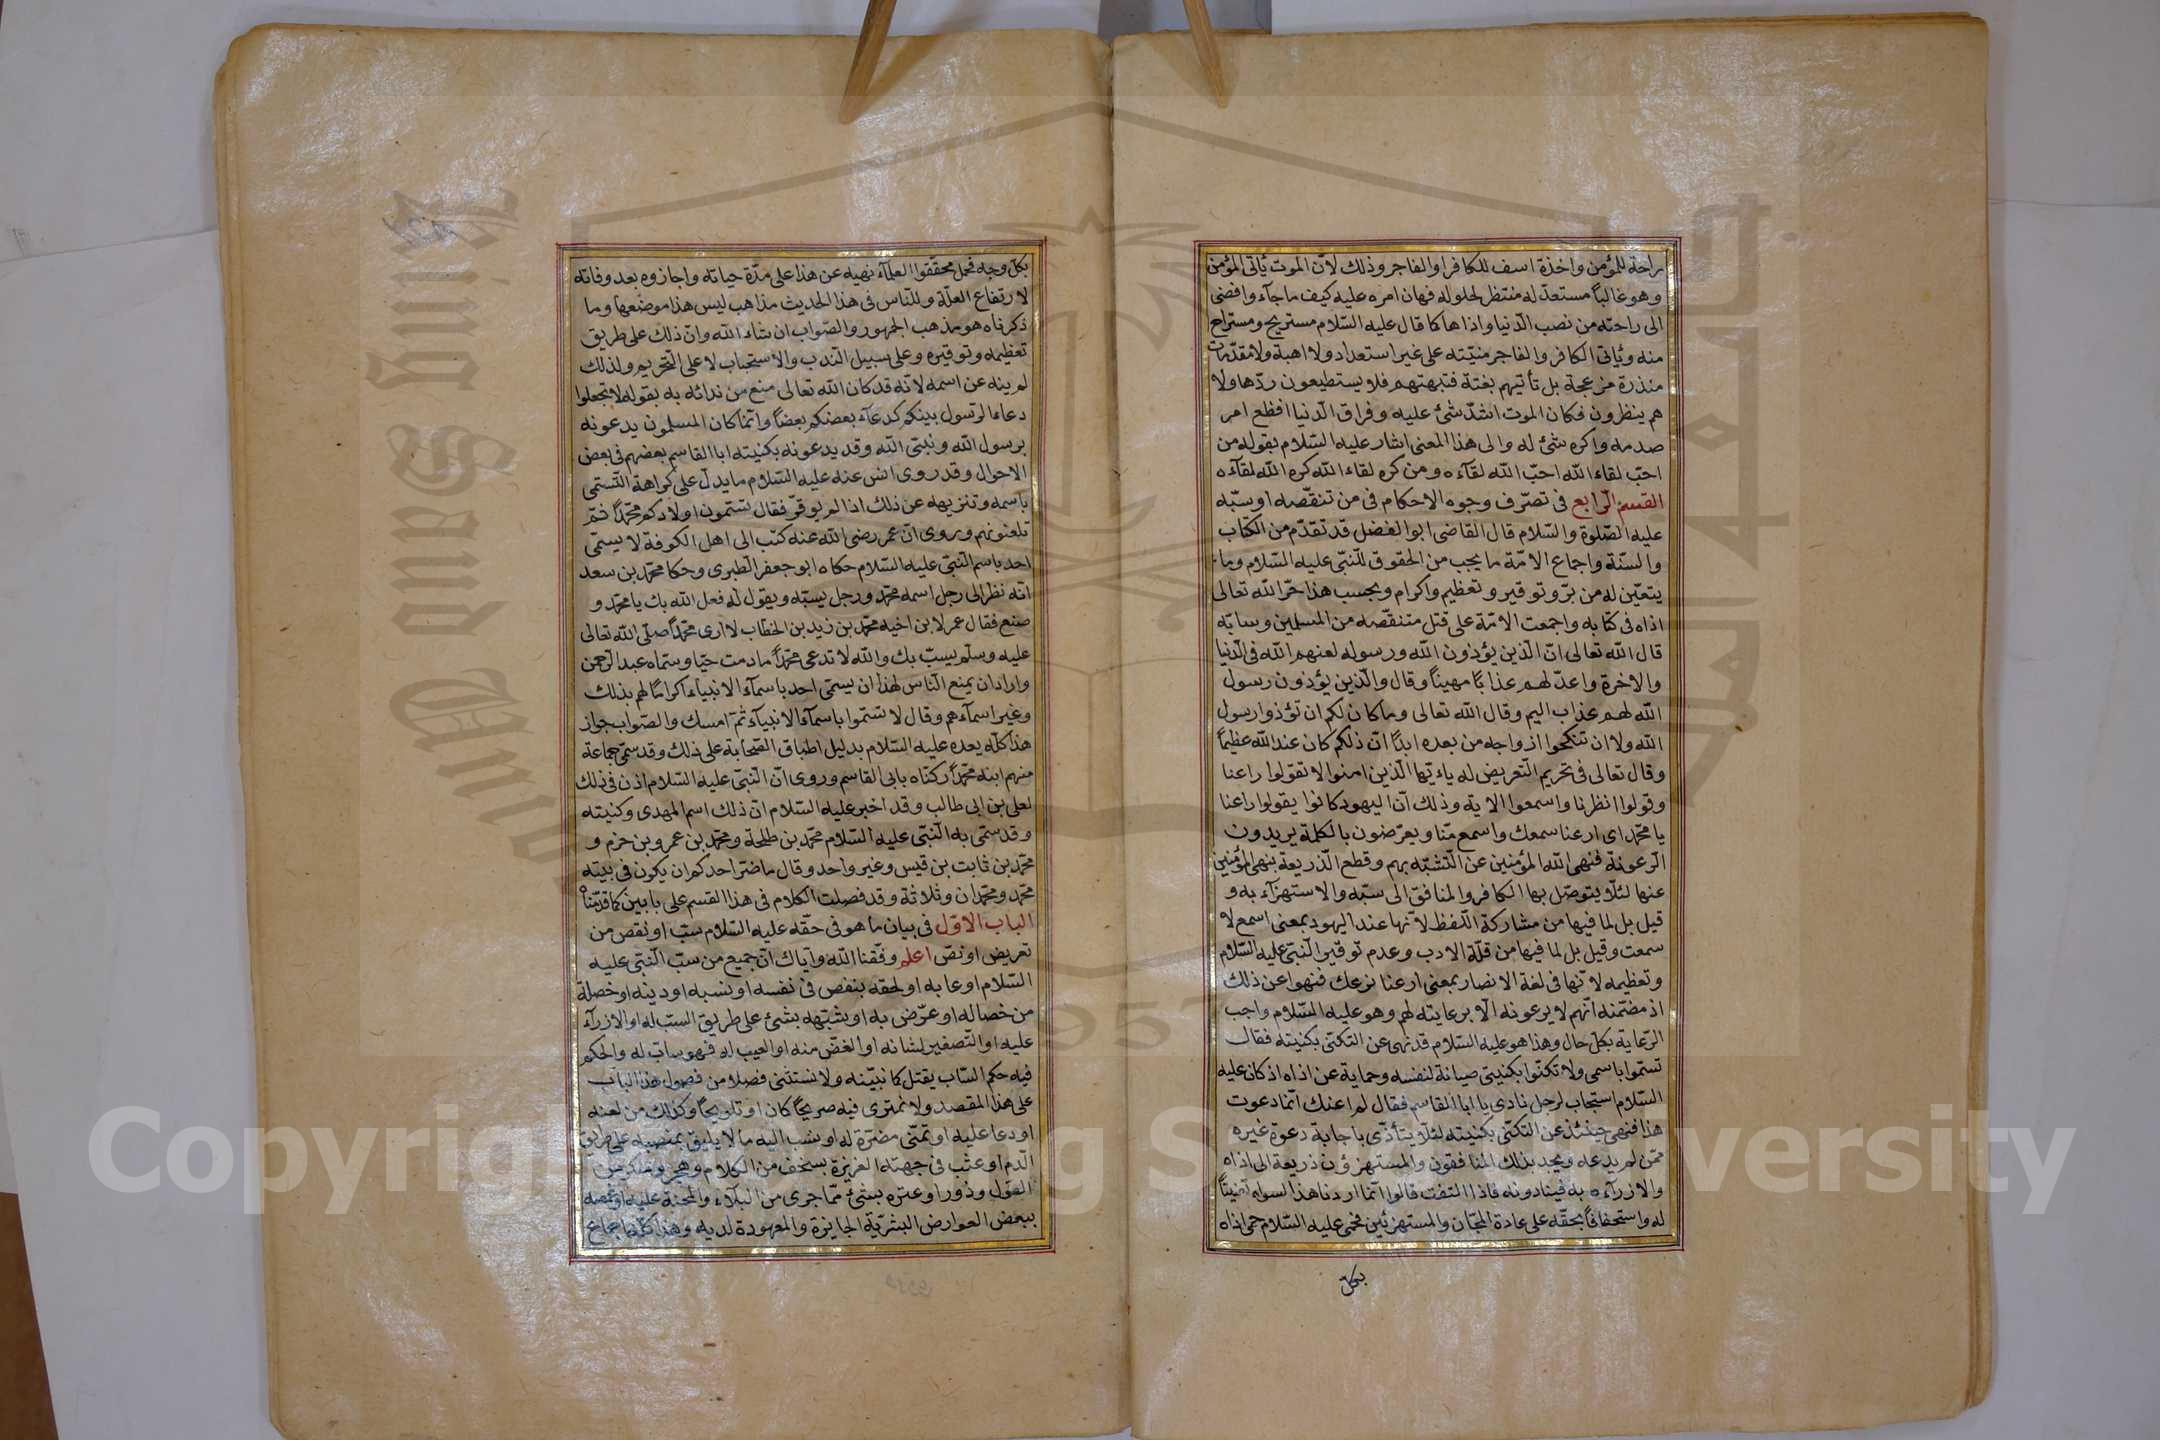 راحة للمؤمن واخذة اسف للكافر او الفاجر وذلك لانّ الموت يأتى المؤمن
وهو غالباً مستعدّ له منتظر لحلوله فهان امره عليه كيف ما جاء وافضى
الى راحته من نصب الدّنيا واذاها كما قال عليه السّلام مستريح ومستراح
منه ويأتى الكافر والفاجر منيّته على غير استعداد ولا اهبة ولا مقدّمات
منذرة مزعجة بل تأتيهم بغتة فتبهتهم فلا يستطيعون ردّها ولا
هم ينظرون فكان الموت اشدّ شئ عليه وفراق الدّنيا افظع امر
صدمه واكره شئ له والى هذا المعنى اشار عليه السّلام بقوله من
احبّ لقاء الله احبّ الله لقآءه ومن كره لقاء الله كره الله لقآءه
القسم الرّابع فى تصرّف وجوه الاحكام فى من تنقّصه او سبّه
عليه الصّلوة والسّلام قال القاضى ابو الفضل قد تقدّم من الكتاب
والسنّة واجماع الامّة ما يجب من الحقوق للنّبى عليه السّلام وما
يتعيّن له من برّ وتوقير وتعظيم واكرام وبحسب هذا حرّم الله تعالى
اذاه فى كتابه واجمعت الامّة على قتل متنقّصه من المسلمين وسابّه
قال الله تعالى انّ الّذين يؤذون الله ورسوله لعنهم الله فى الدّنيا
والاخرة واعدّ لهم عذاباً مهيناً وقال والّذين يؤذون رسول
الله لهم عذاب اليم وقال الله تعالى وما كان لكم ان تؤذوا رسول
الله ولا ان تنكحوا ازواجه من بعده ابدًا انّ ذلكم كان عند الله عظيماً
وقال تعالى فى تحريم التّعريض له ياءيّها الّذين امنوا لا تقولوا راعنا
وقولوا انظرنا واسمعوا الاية وذلك انّ اليهود كانوا يقولوا راعنا
يا محمّد اى ارعنا سمعك واسمع منّا ويعرّضون بالكلمة يريدون
الرّعونة فنهى الله المؤمنين عن التّشبّه بهم وقطع الذّريعة بنهى المؤمنين
عنها لئلّا يتوصّل بها الكافر والمنافق الى سبّه والاستهزآء به و
قيل بل لما فيها من مشاركة اللّفظ لانّها عند اليهود بمعنى اسمع لا
سمعت وقيل بل لما فيها من قلّة الادب وعدم توقير النّبى عليه السّلام
وتعظيمه لانّها فى لغة الانصار بمعنى ارعنا نرعك فنهوا عن ذلك
اذ مضمّنه انّهم لا يرعونه الّا برعايته لهم وهو عليه السّلام واجب
الرّعاية بكلّ حال وهذا هو عليه السّلام قد نهى عن التكنّى بكنيته فقال
تسمّوا باسمى ولا تكنّوا بكنيتى صيانة لنفسه وحماية عن اذاه اذ كان عليه
السّلام استجاب لرجل نادى يا ابا القاسم فقال لم اعنك انّما دعوت
هذا فنهى حينئذ عن التكنّى بكنيته لئلّا يتأذّى باجابة دعوة غيره
ممّن لم يدعه ويجد بذلك المنافقون والمستهزؤن ذريعة الى اذاه
والازرآءه به فينادونه فاذا التفت قالوا انّما اردنا هذا لسواه تعنيتاً
له واستخفافاً بحقّه على عادة المجّان والمستهزئين فحمى عليه السّلام حمى اذاه
بكلّ
بكلّ وجه فحمل محقّقوا العلمآء نهيه عن هذا على مدّة حياته واجازوه بعد وفاته
لارتفاع العلّة وللنّاس فى هذا الحديث مذاهب ليس هذا موضعها وما
ذكرناه هو مذهب الجمهور والصّواب ان شاء الله وانّ ذلك على طريق
تعظيمه وتوقيره وعلى سبيل النّدب والاستحباب لا على التّحريم ولذلك
لم ينه عن اسمه لانّه قد كان الله تعالى منع من ندائه به بقوله لا تجعلوا
دعاء الرّسول بينكم كدعآء بعضكم بعضاً وانّما كان المسلمون يدعونه
برسول الله ونبىّ الله وقد يدعونه بكنيته ابا القاسم بعضهم فى بعض
الاحوال وقد روى انس عنه عليه السّلام ما يدلّ على كراهة التّسمّى
باسمه وتنزيهه عن ذلك اذا لم يوقّر فقال تسمّون اولادكم محمّداً ثمّ
تلعنونهم وروى انّ عمر رضى الله عنه كتب الى اهل الكوفة لا يسمّى
احد باسم النّبىّ عليه السّلام حكاه ابو جعفر الطبرى وحكا محمّد بن سعد
انّه نظر الى رجل اسمه محمّد ورجل يسبّه ويقول له فعل الله بك يا محمّد و
صنع فقال عمر لابن اخيه محمّد بن زيد بن الخطّاب لا ارى محمّداً صلّى الله تعالى
عليه وسلّم يسبّ بك والله لا تدعى محمّداً ما دمت حيّا وسمّاه عبد الرّحمن
واراد ان يمنع النّاس لهذا ان يسمّى احد باسمآء الانبيآء اكرامًا لهم بذلك
وغير اسمآءهم وقال لا تسمّوا باسمآء الانبيآء ثمّ امسك والصّواب جواز
هذا كلّه بعده عليه السّلام بدليل اطباق الصّحابة على ذلك وقد سمّى جماعة
منهم ابنه محمّداً وكنّاه بابى القاسم وروى انّ النّبىّ عليه السّلام اذن فى ذلك
لعلى بن ابى طالب وقد اخبر عليه السّلام انّ ذلك اسم المهدى وكنيته
وقد سمّى به النّبىّ عليه السّلام محمّد بن طلحة ومحمّد بن عمرو بن حزم و
محمّد بن ثابت بن قيس وغير واحد وقال ما ضرّ احدكم ان يكون فى بيته
محمّد ومحمّدان وثلاثة وقد فصلت الكلام فى هذا القسم على بابين كما قدّمناه
الباب الاوّل فى بيان ما هو فى حقّه عليه السّلام سبّ او نقص من
تعريض او نصّ اعلم وفّقنا الله وايّاك انّ جميع من سبّ النّبىّ عليه
السّلام او عابه او الحقه بنقص فى نفسه او نسبه او دينه او خصلة
من خصاله او عرّض به او شبّهه بشئ على طريق السبّ له او الازرآء
عليه او التّصغير لشانه او الغضّ منه او العيب له فهو سابّ له والحكم
فيه حكم السّاب يقتل كما نبيّنه ولا نستثنى فصلا من فصول هذا الباب
على هذا المقصد ولا نمترى فيه صريحًا كان او تلويحًا وكذلك من لعنه
او دعا عليه او تمنّى مضرّة له او نسب اليه ما لا يليق بمنصبه على طريق
الذّم او عبّث فى جهته العزيزة بسخف من الكلام وهجر ومنكر من
القول وزور او عيّره بشئ ممّا جرى من البلآء والمحنة عليه او غمصه
ببعض العوارض البشريّة الجايزة والمعهودة لديه وهذا كلّه اجماع
Copyright King Saud University